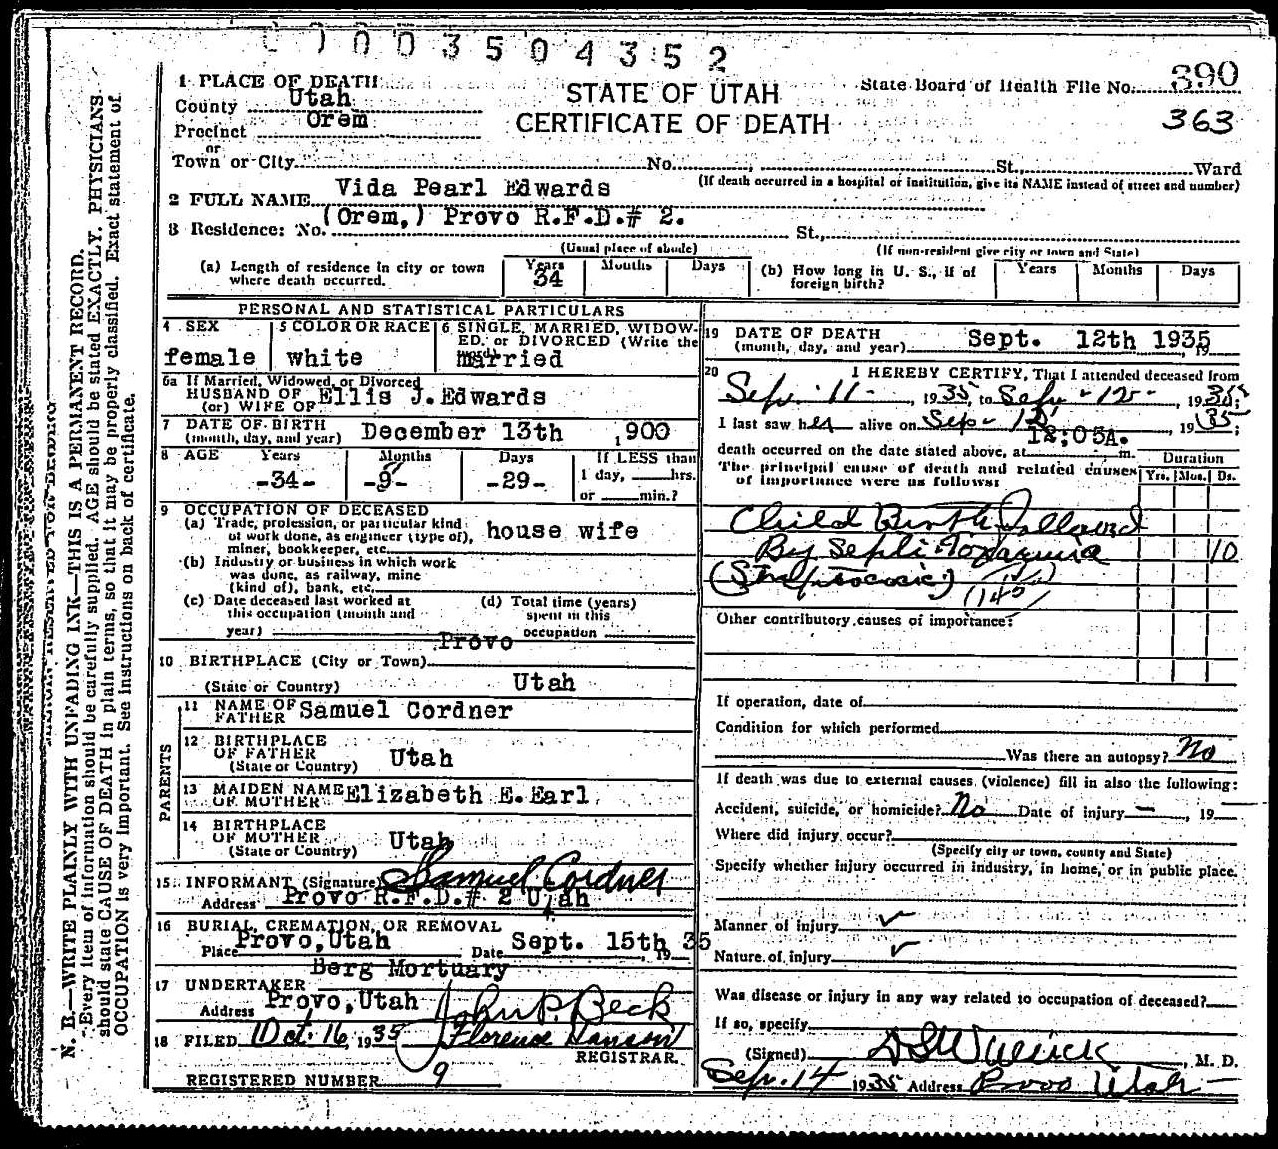 0003504352
390
363
STATE OF UTAH
CERTIFICATE OF DEATH
State Board of Health File No.
1 PLACE OF DEATH
County Utah
Precinct Orem
or
Town or City No. , St., Ward
(If death occurred in a hospital or institution, give its NAME instead of street and number)
2 FULL NAME Vida Pearl Edwards
3 Residence: No. (Orem,) Provo R.F.D.# 2. St.,
(Usual place of abode) (If non-resident give city or town and State)
(a) Length of residence in city or town where death occurred. Years 34 Months Days
(b) How long in U. S., if of foreign birth? Years Months Days
PERSONAL AND STATISTICAL PARTICULARS
4 SEX female
5 COLOR OR RACE white
6 SINGLE, MARRIED, WIDOWED, or DIVORCED (Write the word) married
6a If Married, Widowed, or Divorced
HUSBAND OF
(or) WIFE OF Ellis J. Edwards
7 DATE OF BIRTH
(month, day, and year) December 13th ,1900
8 AGE Years -34- Months -9- Days -29- If LESS than
1 day, hrs.
or min.?
9 OCCUPATION OF DECEASED
(a) Trade, profession, or particular kind
of work done, as engineer (type of),
miner, bookkeeper, etc. house wife
(b) Industry or business in which work
was done, as railway, mine
(kind of), bank, etc.
(c) Date deceased last worked at
this occupation (month and
year)
(d) Total time (years)
spent in this
occupation
10 BIRTHPLACE (City or Town) Provo
(State or Country) Utah
PARENTS
11 NAME OF
FATHER Samuel Cordner
12 BIRTHPLACE
OF FATHER
(State or Country) Utah
13 MAIDEN NAME
OF MOTHER Elizabeth E. Earl
14 BIRTHPLACE
OF MOTHER
(State or Country) Utah
15 INFORMANT (Signature) Samuel Cordner
Address Provo R.F.D.# 2 Utah
16 BURIAL, CREMATION, OR REMOVAL
Place Provo, Utah Date Sept. 15th , 19 35
17 UNDERTAKER Berg Mortuary
Address Provo, Utah John P. Beck
18 FILED Oct. 16, 1935 Florence Hanson
REGISTRAR.
REGISTERED NUMBER 9
19 DATE OF DEATH
(month, day, and year) Sept. 12th 1935 , 19
20 I HEREBY CERTIFY, That I attended deceased from
Sep. 11 - , 1935, to Sep - 12 - , 1935;
I last saw her alive on Sep - 12 , 1935;
death occurred on the date stated above, at 12:05A. m.
The principal cause of death and related causes
of importance were as follows:
Duration
Yrs. Mos. Ds.
Child Birth Followed
By Septi Toxaemia 10
145
Other contributory causes of importance:
If operation, date of
Condition for which performed
Was there an autopsy? No
If death was due to external causes (violence) fill in also the following:
Accident, suicide, or homicide? No Date of injury — , 19
Where did injury occur?
(Specify city or town, county and State)
Specify whether injury occurred in industry, in home, or in public place.
Manner of injury ✓
Nature of injury ✓
Was disease or injury in any way related to occupation of deceased?
If so, specify
(Signed) , M. D.
Sep. 14 1935 Address Provo Utah
N. B.—WRITE PLAINLY WITH UNFADING INK—THIS IS A PERMANENT RECORD.
Every item of information should be carefully supplied. AGE should be stated EXACTLY. PHYSICIANS
should state CAUSE OF DEATH in plain terms, so that it may be properly classified. Exact statement of
OCCUPATION is very important. See instructions on back of certificate.